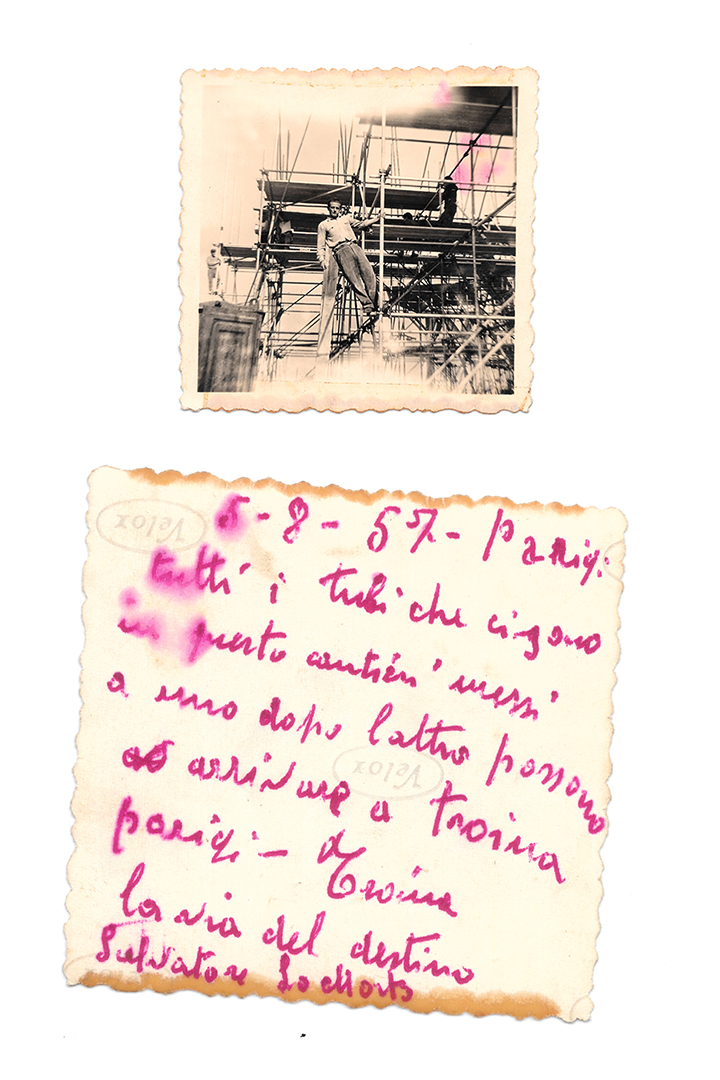 Velox
5-8-57- Parigi
tutti i tubi che cigono
in questo cantien' messi'
a uno dopo laltro possono
arrivare a troina
parigi - a Troina
la via del destino
Salvatore Lo Monts
Velox